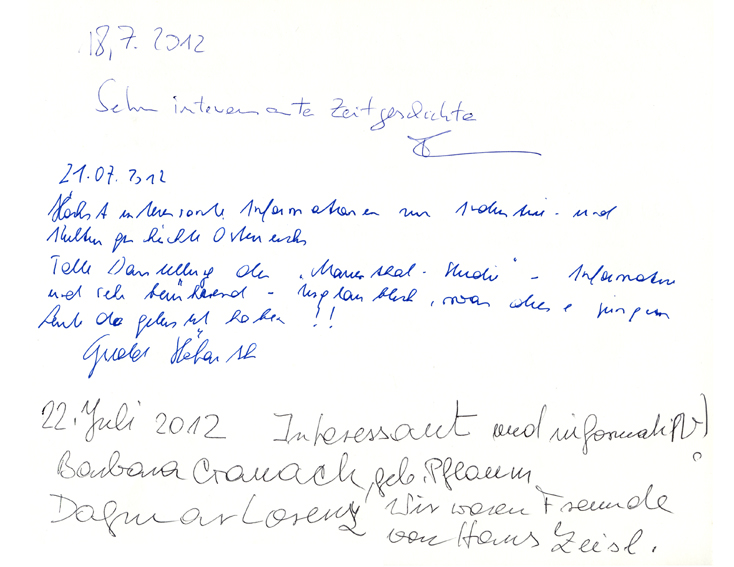 18.7. 2012
Sehr interessante Zeitgeschichte
21.07.2012
Höchst interessante Informationen zur Industrie- und
Kulturgeschichte Österreichs
Tolle Darstellung der „Marienthal-Studie" - Informativ
und sehr berührend - unglaublich, was diese jungen
Leute da geleistet haben !!
22. Juli 2012 Interessant und informativ!
Barbara Cranach, geb. Pflaum
Dagmar Lorenz Wir waren Freunde
von Hans Zeisl.